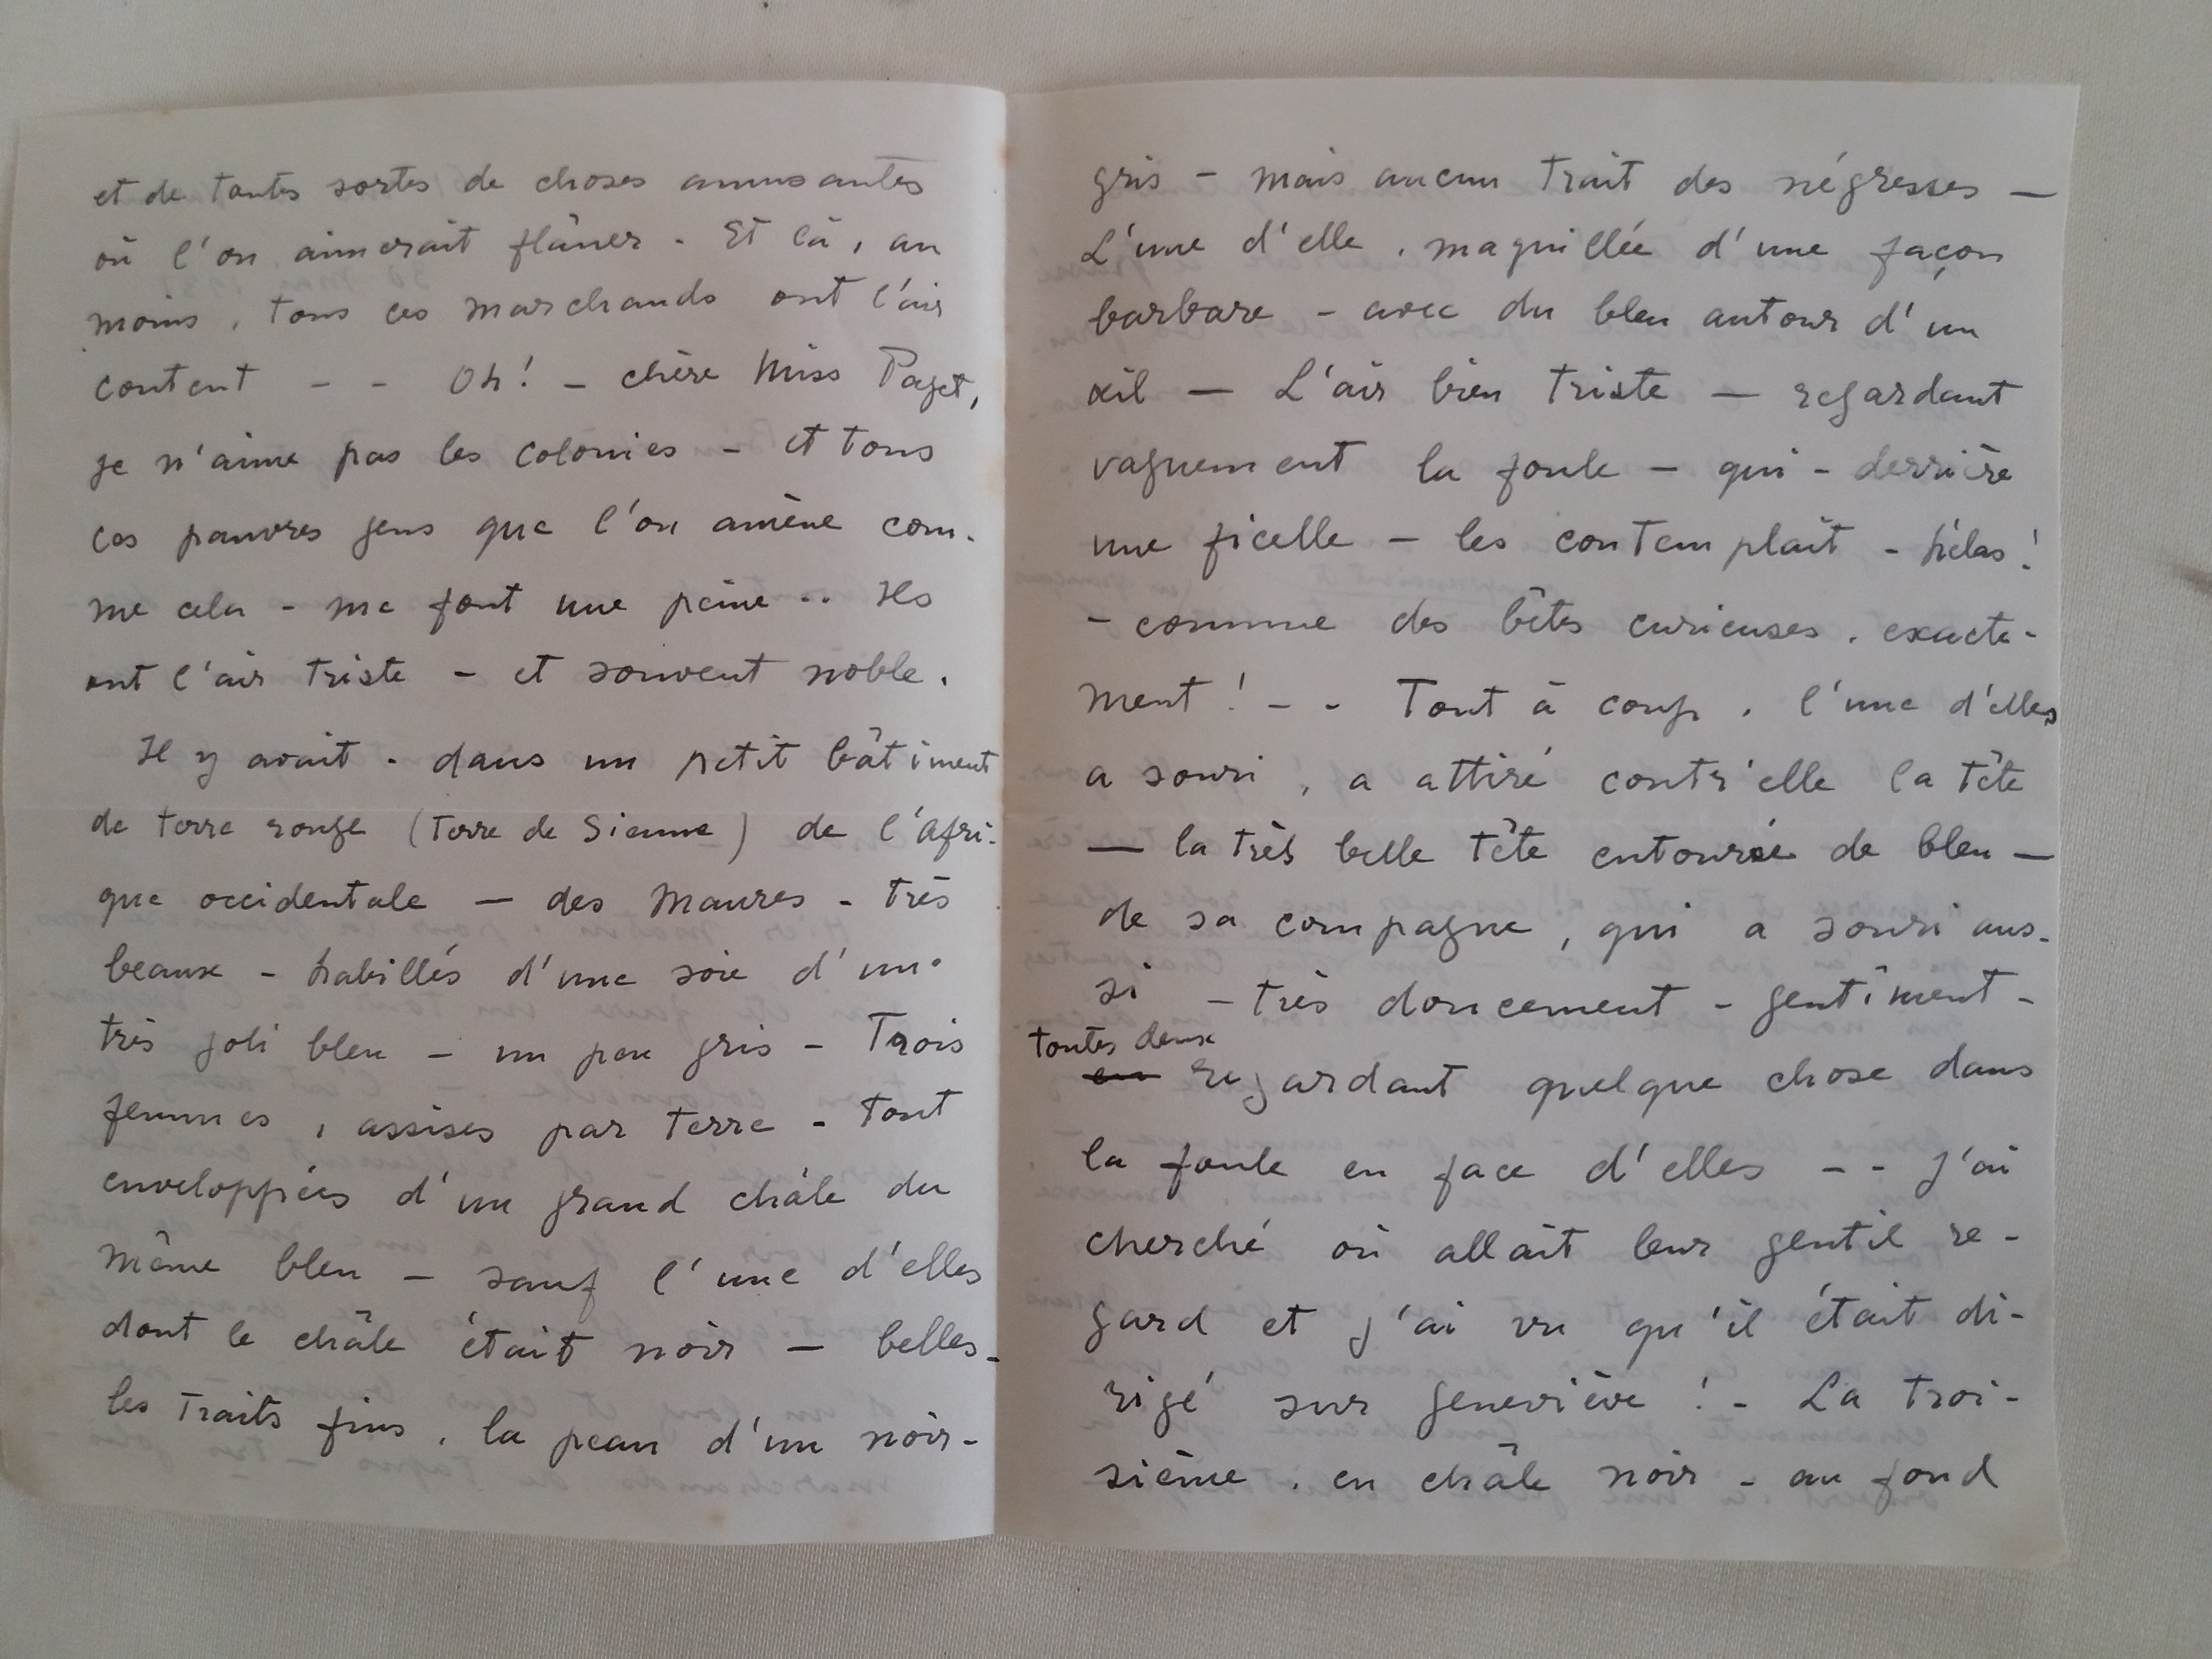 et de toutes sortes de choses amusantes
où l'on aimerait flâner - Et là, au
moins, tous ces marchands ont l'air
content - - Oh! - chère Miss Paget,
je n'aime pas les colonies - et tous
ces pauvres gens que l'on amène com-
me cela - me font une peine .. Ils
ont l'air triste - et souvent noble.
Il y avait - dans un petit bâtiment
de terre rouge (Terre de Sienne) de l'Afri-
que occidentale — des Maures - très
beaux - habillés d'une soie d'un
très joli bleu - un peu gris - Trois
femmes, assises par terre - tout
enveloppées d'un grand châle du
même bleu - sauf l'une d'elles
dont le châle était noir — belles -
les traits fins, la peau d'un noir-
gris - mais aucun trait des négresses —
L'une d'elle, maquillée d'une façon
barbare - avec du bleu autour d'un
œil — L'air bien triste — regardant
vaguement la foule — qui - derrière
une ficelle - les contemplait - hélas!
- comme des bêtes curieuses, exacte-
ment! - - Tout à coup, l'une d'elles
a souri, a attiré contr'elle la tête
— la très belle tête entourée de bleu —
de sa compagne, qui a souri aus-
si - très doucement - gentiment -
toutes deux
en regardant quelque chose dans
la foule en face d'elles - - J'ai
cherché où allait leur gentil re-
gard et j'ai vu qu'il était di-
rigé sur Geneviève! - La troi-
sième, en châle noir - au fond